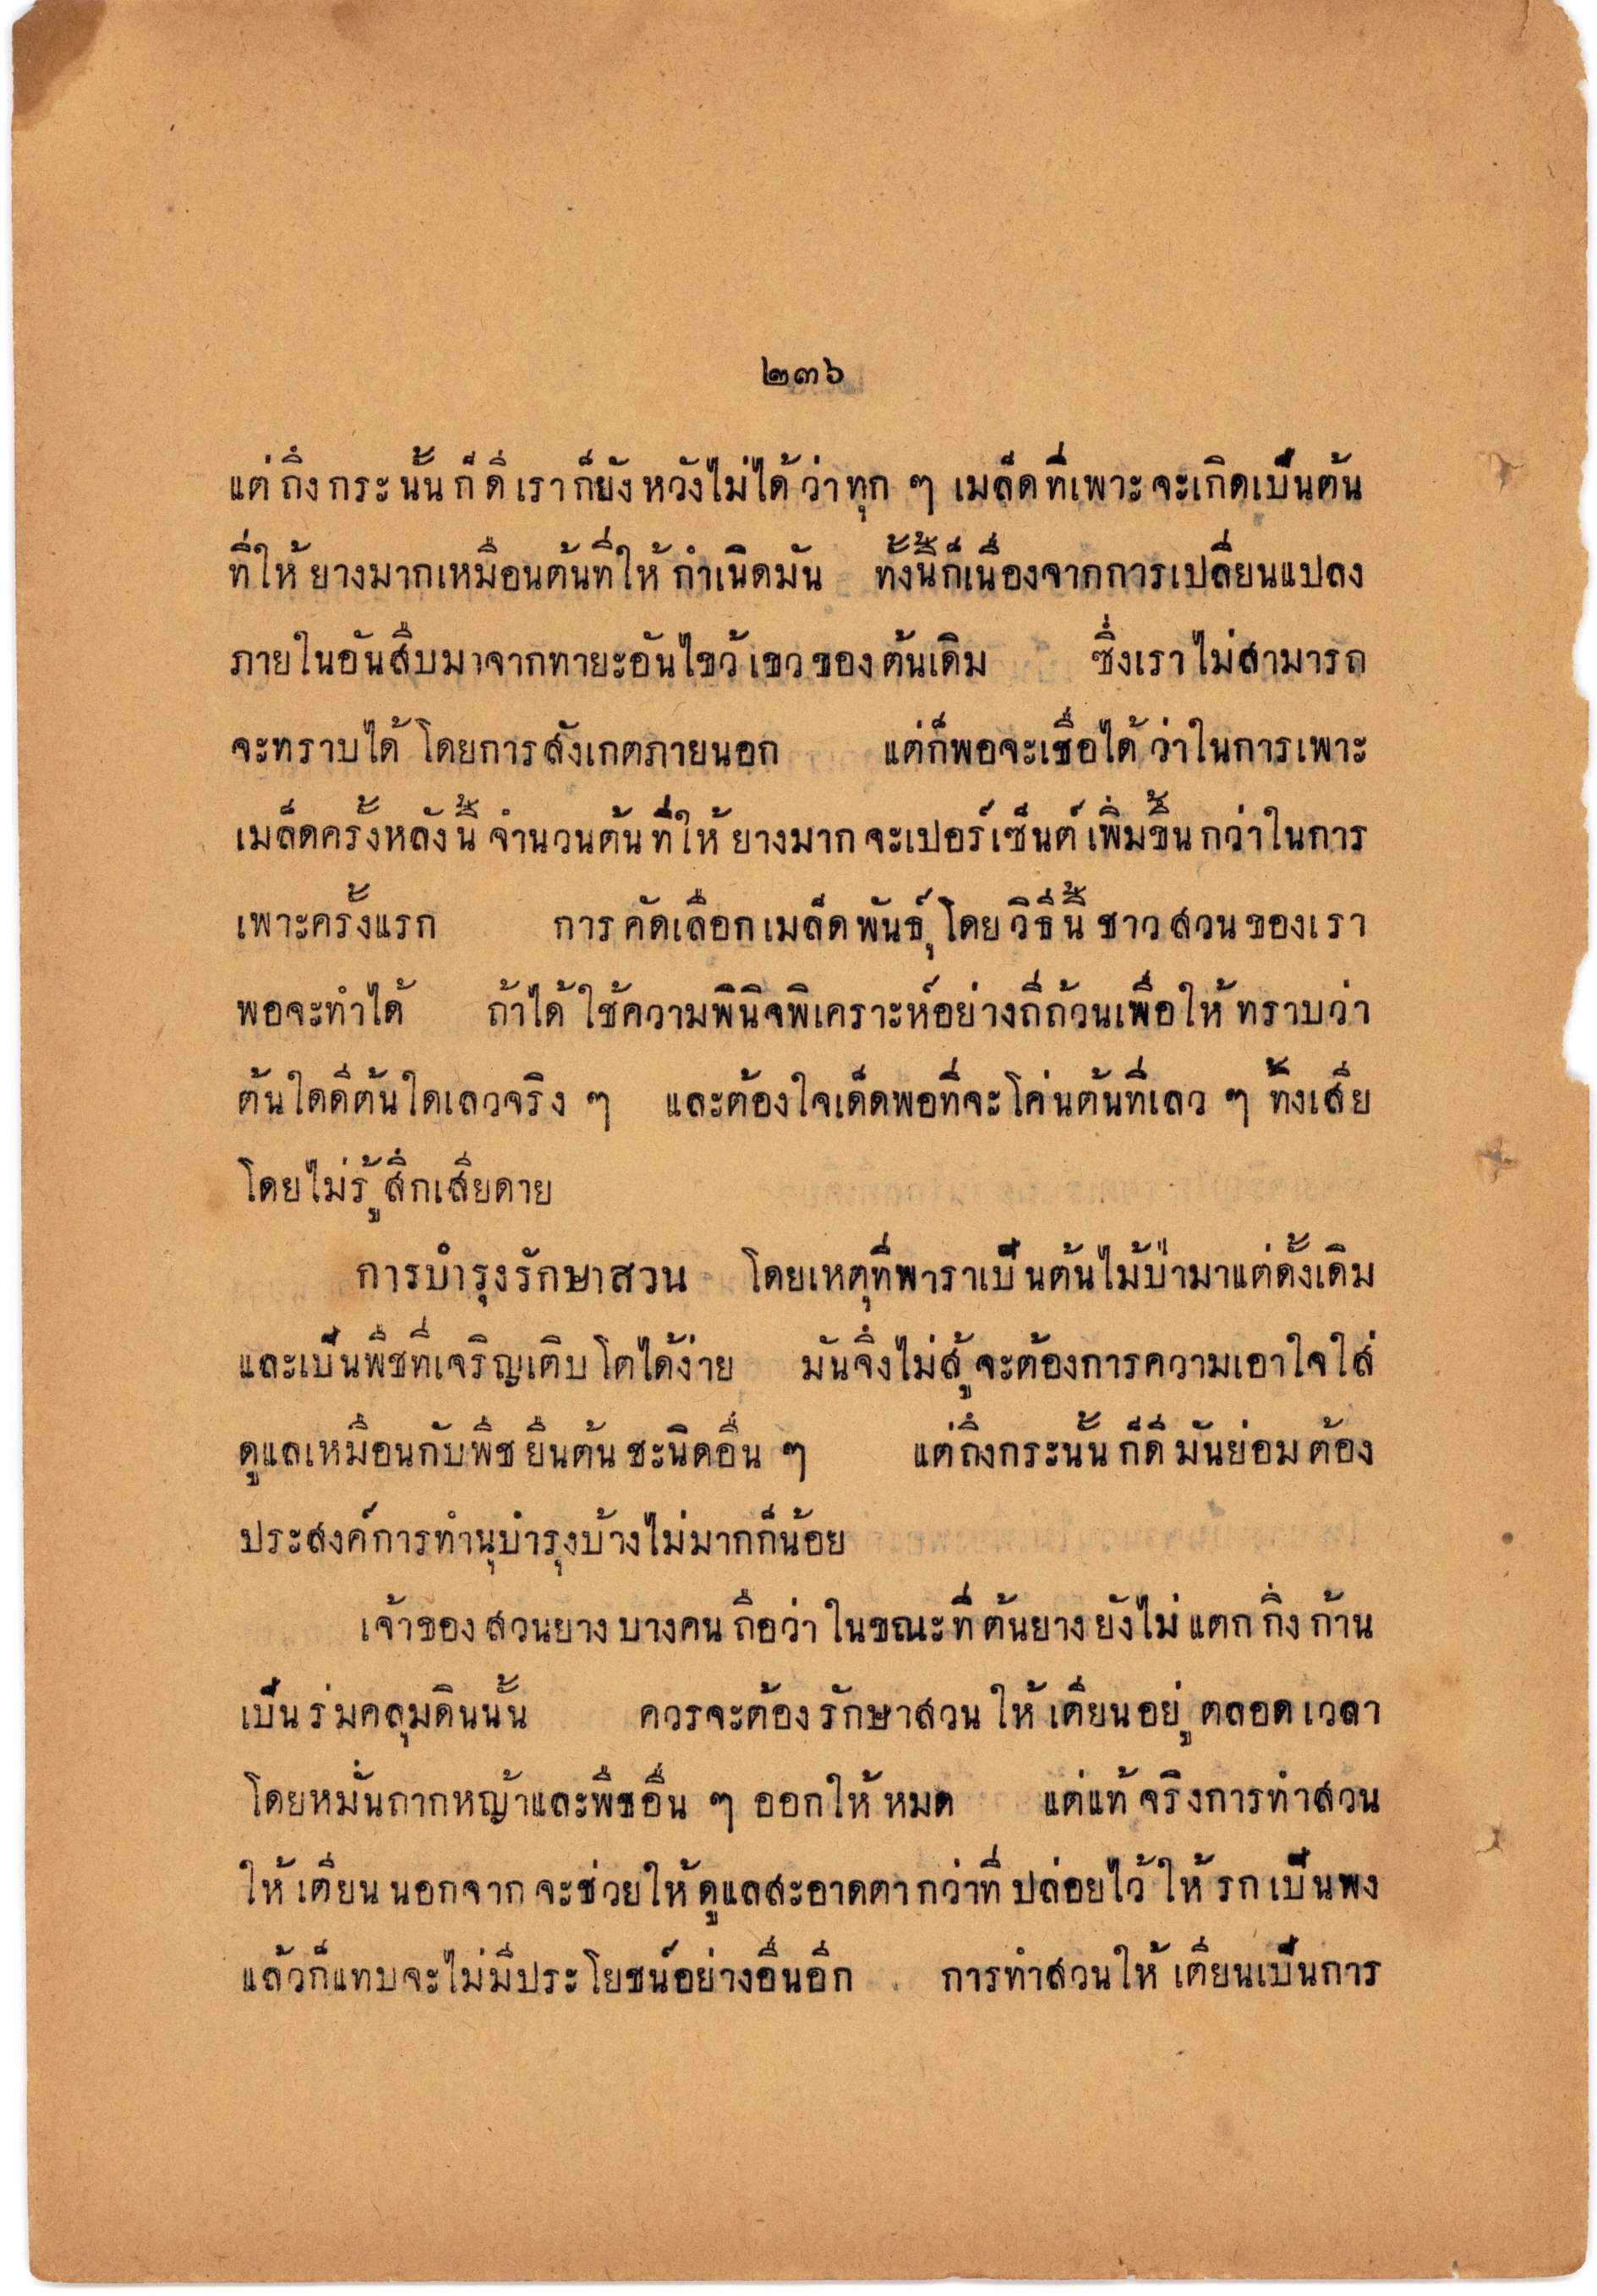 ๒๓๖
แต่ถึงกระนั้นก็ดี เราก็ยังหวังไม่ได้ว่าทุก ๆ เมล็ดที่เพาะจะเกิดเป็นต้น
ที่ให้ยางมากเหมือนต้นที่ให้กำเนิดมัน ทั้งนี้ก็เนื่องจากการเปลี่ยนแปลง
ภายในอันสืบมาจากทายะอันไขว้เขวของต้นเดิม ซึ่งเราไม่สามารถ
จะทราบได้โดยการสังเกตภายนอก แต่ก็พอจะเชื่อได้ว่าในการเพาะ
เมล็ดครั้งหลังนี้ จำนวนต้นที่ให้ยางมากจะเปอร์เซ็นต์เพิ่มขึ้นกว่าในการ
เพาะครั้งแรก การคัดเลือกเมล็ดพันธุ์โดยวิธีนี้ ชาวสวนของเรา
พอจะทำได้ ถ้าได้ใช้ความพินิจพิเคราะห์อย่างถี่ถ้วนเพื่อให้ทราบว่า
ต้นใดดีต้นใดเลวจริง ๆ และต้องใจเด็ดพอที่จะโค่นต้นที่เลว ๆ ทิ้งเสีย
โดยไม่รู้สึกเสียดาย
การบำรุงรักษาสวน โดยเหตุที่พาราเป็นต้นไม้ป่ามาแต่ดั้งเดิม
และเป็นพืชที่เจริญเติบโตได้ง่าย มันจึงไม่สู้จะต้องการความเอาใจใส่
ดูแลเหมือนกับพืชยืนต้นชะนิดอื่น ๆ แต่ถึงกระนั้นก็ดี มันย่อมต้อง
ประสงค์การทำนุบำรุงบ้างไม่มากก็น้อย
เจ้าของสวนยางบางคนถือว่า ในขณะที่ต้นยางยังไม่แตกกิ่งก้าน
เป็นร่มคลุมดินนั้น ควรจะต้องรักษาสวนให้เตียนอยู่ตลอดเวลา
โดยหมั่นถากหญ้าและพืชอื่น ๆ ออกให้หมด แต่แท้จริงการทำสวน
ให้เตียนนอกจากจะช่วยให้ดูแลสะอาดตากว่าที่ปล่อยไว้ให้รกเป็นพง
แล้วก็แทบจะไม่มีประโยชน์อย่างอื่นอีก การทำสวนให้เตียนเป็นการ